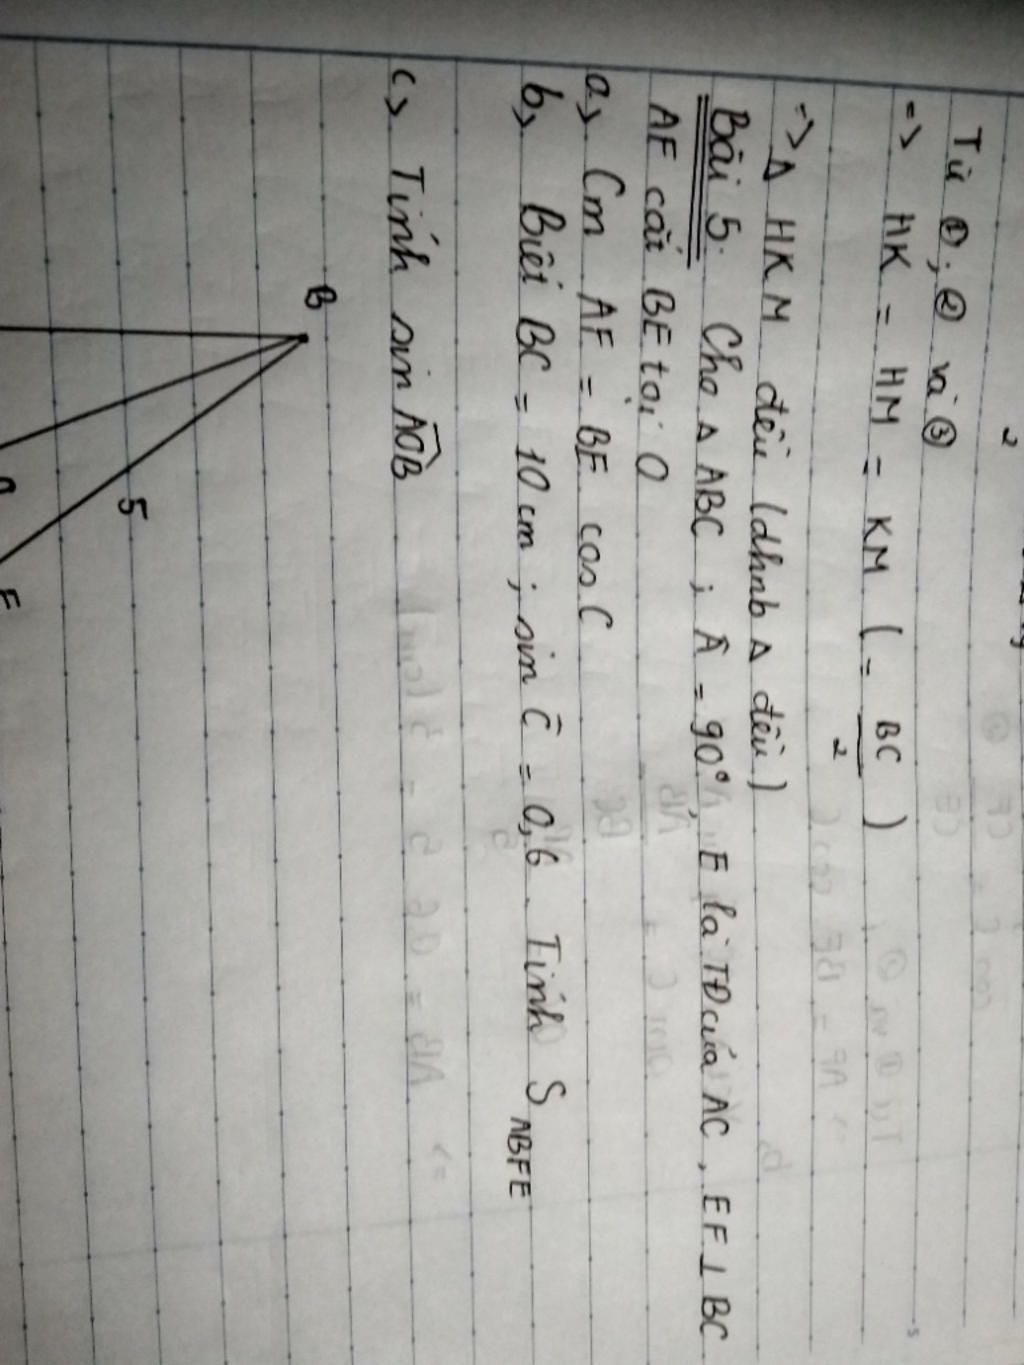 2
Từ ①, ② và ③
=> HK = HM = KM ( = BC / 2 )
=> Δ HKM đều (dhnb Δ đều)
Bài 5. Cho Δ ABC ; Â = 90°, E là TĐ của AC, EF ⊥ BC
AF cắt BE tại O
a, Cm AF = BE cos C
b, Biết BC = 10 cm ; sin Ĉ = 0,6. Tính S ABFE
c, Tính sin AOB
B
5
F